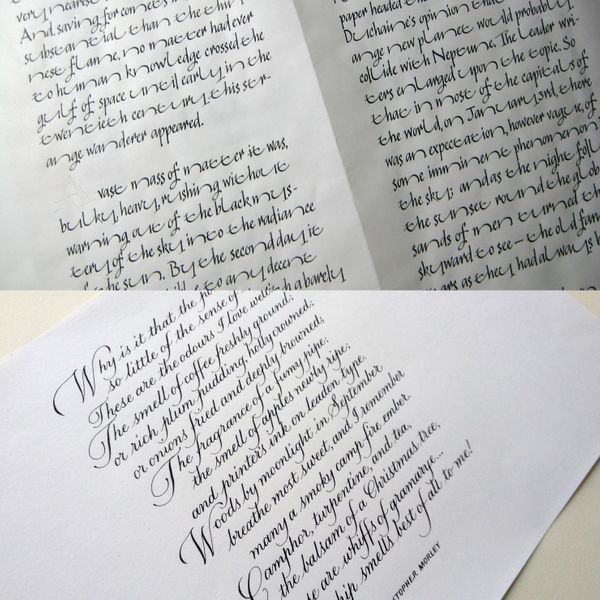 very nearest
And, saving for comets
substantial than the thin
nest flame, no matter had ever
to human knowledge crossed the
gulf of space until early in the
twentieth century this str-
ange wanderer appeared.
vast mass of matter it was,
bulky, heavy, rushing without
warning out of the black mys-
tery of the sky into the radiance
of the sun. By the second day it
to any decent
a barely
paper headed the
Duchaine's opinion that
ange new planet would probably
collide with Neptune. The leader wri-
ters enlarged upon the topic. So
that in most of the capitals of
the world, on January 3rd, there
was an expectation, however vague, of
some imminent phenomenon
the sky; and as the night foll
the sunset round the glob
sands of men turned th
skyward to see — the old fam
ars as they had always b
Why is it that the
so little of the sense of
These are the odours I love well:
The smell of coffee freshly ground;
or rich plum pudding, holly crowned;
or onions fried and deeply browned.
The fragrance of a fumy pipe;
the smell of apples nearly ripe;
and printer's ink on leaden type.
Woods by moonlight in September
breathe most sweet, and I remember
many a smoky camp-fire ember.
Camphor, turpentine, and tea,
the balsam of a Christmas tree,
se are whiffs of gramarye...
ship smells best of all to me!
STOPHER MORLEY